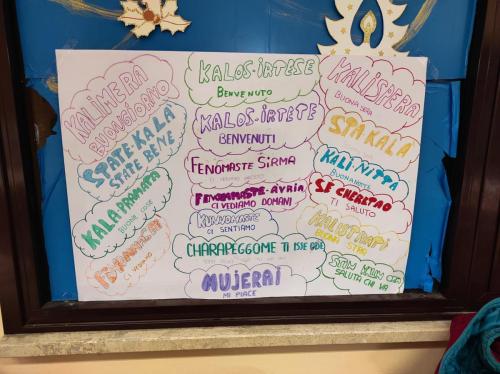 KALIMERA
BUONGIORNO
STATE-KALA
STATE BENE
KALA-PRAMATA
BUONE COSE
VEDIAMO
KALOS-IRTESE
BENVENUTO
KALOS-IRTETE
BENVENUTI
FENOMASTE SIRMA
CI VEDIAMO PRESTO
FENOMASTE-AVRIA
CI VEDIAMO DOMANI
KUNUOMASTE
CI SENTIAMO
CHARAPEGGOME TI ISE ODE
MUJERAI
MI PIACE
KALISPERA
BUONA SERA
STA KALA
KALI-NITTA
BUONANOTTE
SE CHERETAO
TI SALUTO
SALUTA CHI VA